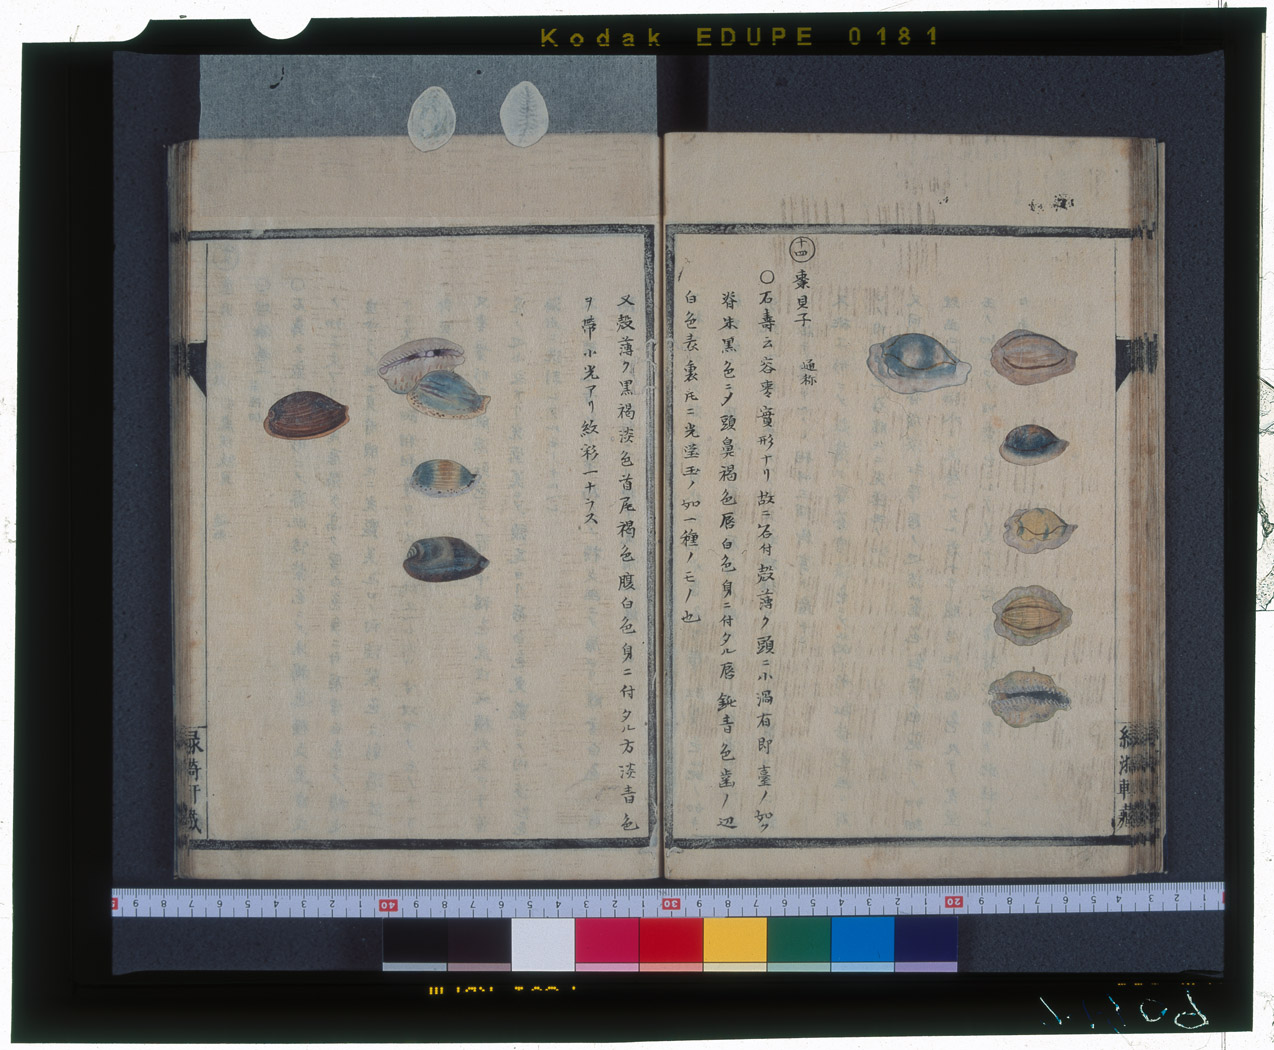 Kodak EDUPE 0181
十四
棗貝子 通称
○石壽云容棗實形ナリ故ニ名付殻薄ク頭ニ小渦有即臺ノ如ク
脊朱黒色ニ〆頭鼻褐色唇白色身ニ付タル唇鈍青色歯ノ辺
白色表裏氏ニ光瑩玉ノ如一種ノモノ也
又殻薄ク黒褐淡色首尾褐色腹白色身ニ付タル方淡青色
ヲ帯小光アリ紋彩一ナラス
緑漪軒蔵
緑漪軒蔵
40
30
20